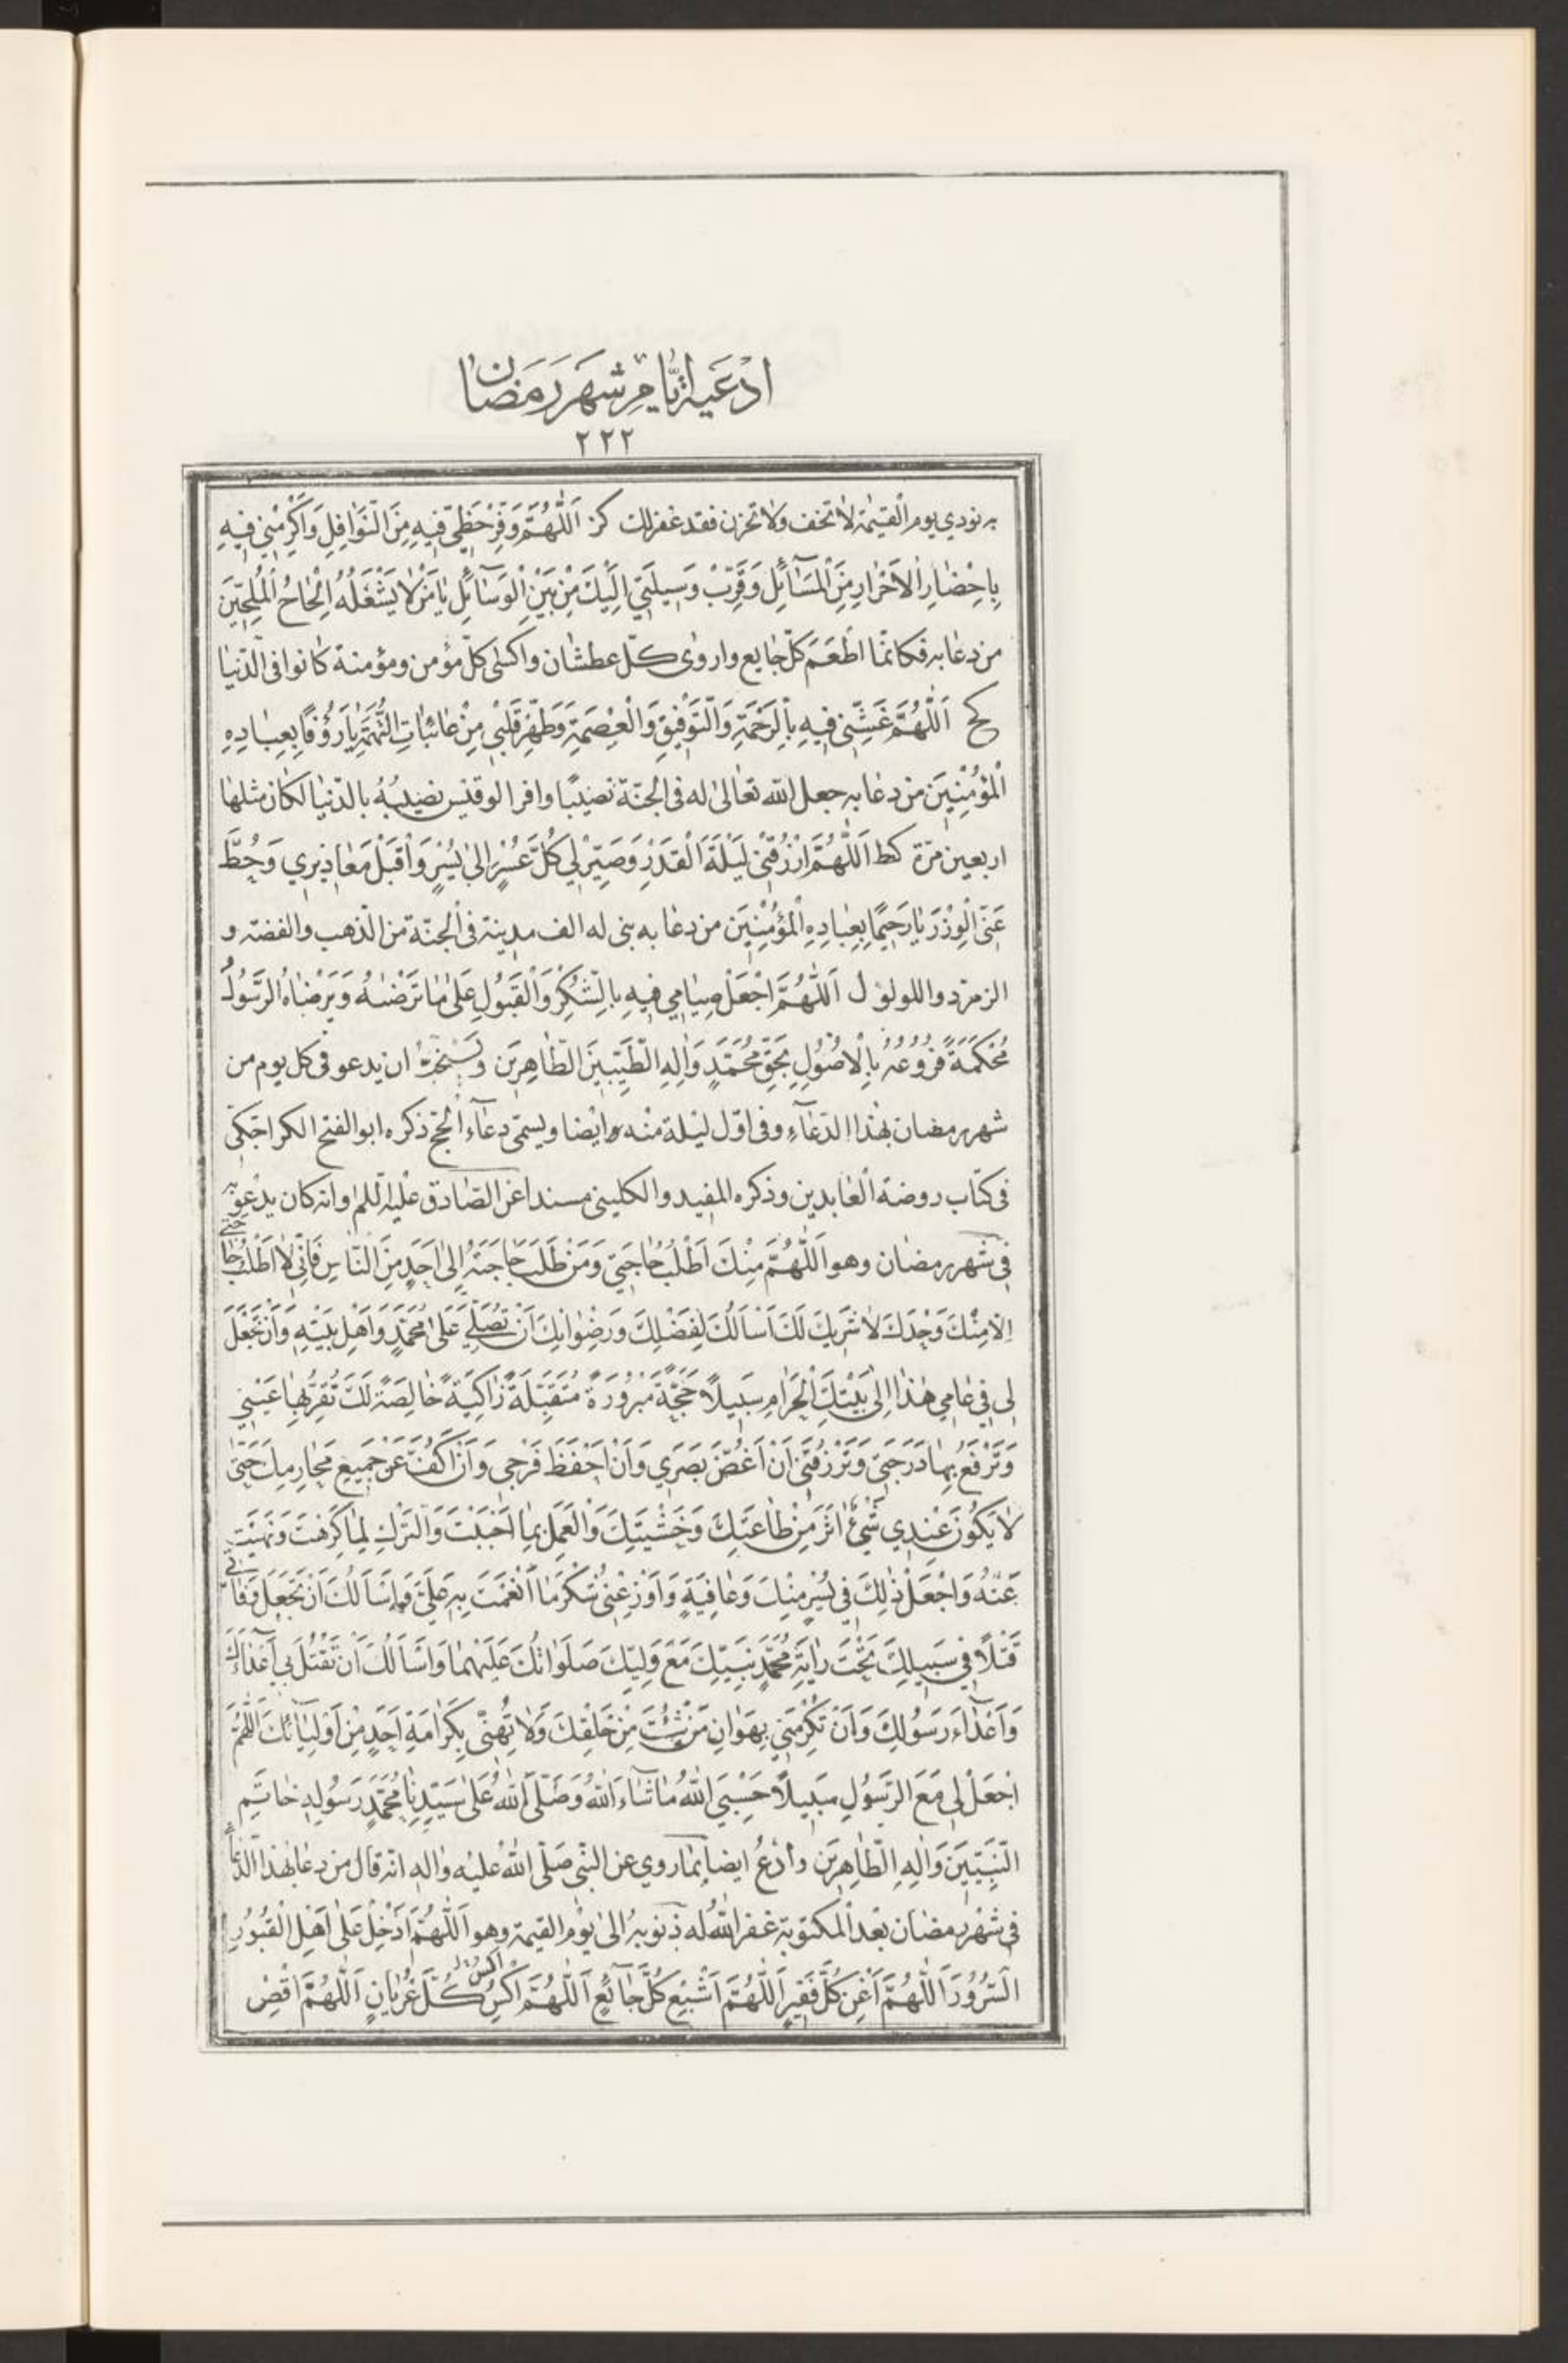 ادْعَيه ايّامِ شَهرِ رَمَضان
٢٢٢
به نودي يوم القيٰمة لا تخف ولا تحزن فقد غفر لك كز اَللّٰهُمَّ وَفِّرْ حَظّي فيهِ مِنَ النَّوافِلِ وَاَكْرِمْني فيهِ
بِاِحْضارِ الاَحْرارِ مِنَ الْمَسآئِلِ وَقَرِّبْ وَسيلَتي اِلَيْكَ مِنْ بَيْنِ الْوَسآئِلِ يا مَنْ لا يَشْغَلُهُ اِلْحاحُ الْمُلِحّينَ
من دعا به فكانّما اطْعَمَ كلّ جايع واروى كلّ عطشان واكسٰى كلّ مؤمن ومؤمنة كانوا فى الدّنيا
كح اَللّٰهُمَّ غَشِّني فيهِ بِالرَّحْمَةِ وَالتَّوْفيقِ وَالْعِصْمَةِ وَطَهِّرْ قَلْبي مِنْ عائباتِ التُّهَمَةِ يا رَؤُفًا بِعِبادِهِ
الْمُؤْمِنينَ من دعا به جعل الله تعالى له فى الجنّة نصيبًا وافرا لو قيس نصيبُهُ بالدّنيا لكان مثلها
اربعين مرّة كط اَللّٰهُمَّ ارْزُقْني لَيْلَةَ الْقَدْرِ وَصَيِّرْ لي كُلَّ عُسْرٍ اِلى يُسْرٍ وَاقْبَلْ مَعاذيري وَحُطَّ
عَنّى الْوِزْرَ يا رَحيمًا بِعِبادِهِ الْمُؤْمِنينَ من دعا به بنى له الف مدينة فى الجنّة من الذّهب والفضّة و
الزمرّد واللولؤ ل اَللّٰهُمَّ اجْعَلْ صِيامي فيهِ بِالشُّكْرِ وَالْقَبُولِ عَلى ما تَرْضٰهُ وَيَرْضاهُ الرَّسُولُ
مُحْكَمَةً فُرُوعُهُ بِالْاُصُولِ بِحَقِّ مُحَمَّدٍ وَالِهِ الطَّيِّبينَ الطّاهِرينَ ويستحبّ ان يدعو فى كل يوم من
شهر رمضان بهٰذا الدّعآءِ وفى اوّل ليلة منه وايضا ويسمّى دعآء الحجّ ذكره ابو الفتح الكراجكى
فى كتاب روضة العابدين وذكره المفيد والكلينى مسندا عن الصّادق عليه السّلم وانّه كان يدعو به
فى شهر رمضان وهو اَللّٰهُمَّ مِنْكَ اَطْلُبُ حاجَتي وَمَنْ طَلَبَ حاجَتَهُ اِلى اَحَدٍ مِنَ النّاسِ فَاِنّي لا اَطْلُبُ حاجَتي
اِلّا مِنْكَ وَحْدَكَ لا شَريكَ لَكَ اَسْأَلُكَ بِفَضْلِكَ وَرِضْوانِكَ اَنْ تُصَلِّيَ عَلى مُحَمَّدٍ وَاَهْلِ بَيْتِهِ وَاَنْ تَجْعَلَ
لي في عامي هٰذا اِلى بَيْتِكَ الْحَرامِ سَبيلًا حَجَّةً مَبْرُورَةً مُتَقَبَّلَةً زاكِيَةً خالِصَةً لَكَ تُقِرُّ بِها عَيْني
وَتَرْفَعُ بِها دَرَجَتي وَتَرْزُقَني اَنْ اَغُضَّ بَصَري وَاَنْ اَحْفَظَ فَرْجي وَاَنْ اَكُفَّ عَنْ جَميعِ مَحارِمِكَ حَتّىٰ
لا يَكُونَ عِنْدي شَيْءٌ اٰثَرَ مِنْ طاعَتِكَ وَخَشْيَتِكَ وَالْعَمَلِ بِما اَحْبَبْتَ وَالتَّرْكِ لِما كَرِهْتَ وَنَهَيْتَ
عَنْهُ وَاجْعَلْ ذٰلِكَ في يُسْرٍ مِنْكَ وَعافِيَةٍ وَاَوْزِعْني شُكْرَ ما اَنْعَمْتَ بِهِ عَلَيَّ وَاَسْأَلُكَ اَنْ تَجْعَلَ وَفاتي
قَتْلًا في سَبيلِكَ تَحْتَ رايَةِ مُحَمَّدٍ نَبِيِّكَ مَعَ وَلِيِّكَ صَلَواتُكَ عَلَيْهِما وَاَسْأَلُكَ اَنْ تَقْتُلَ بي اَعْدآءَكَ
وَاَعْدآءَ رَسُولِكَ وَاَنْ تُكْرِمَني بِهَوانِ مَنْ شِئْتَ مِنْ خَلْقِكَ وَلا تُهِنّي بِكَرامَةِ اَحَدٍ مِنْ اَوْلِيآئِكَ اَللّٰهُمَّ
اجْعَلْ لي مَعَ الرَّسُولِ سَبيلًا حَسْبِيَ اللهُ ما شآءَ اللهُ وَصَلَّى اللهُ عَلى سَيِّدِنا مُحَمَّدٍ رَسُولِهِ خاتَمِ
النَّبِيّينَ وَالِهِ الطّاهِرينَ وادْعُ ايضا بما روي عن النّبى صَلّى الله عليه واله انّه قال من دعا بهٰذا الدّعآءِ
فى شهر رمضان بعد المكتوبة غفر الله له ذنوبه الى يوم القيمة وهو اَللّٰهُمَّ اَدْخِلْ عَلى اَهْلِ الْقُبُورِ
السُّرُورَ اَللّٰهُمَّ اَغْنِ كُلَّ فَقيرٍ اَللّٰهُمَّ اَشْبِعْ كُلَّ جآئِعٍ اَللّٰهُمَّ اكْسُ كُلَّ عُرْيانٍ اَللّٰهُمَّ اقْضِ